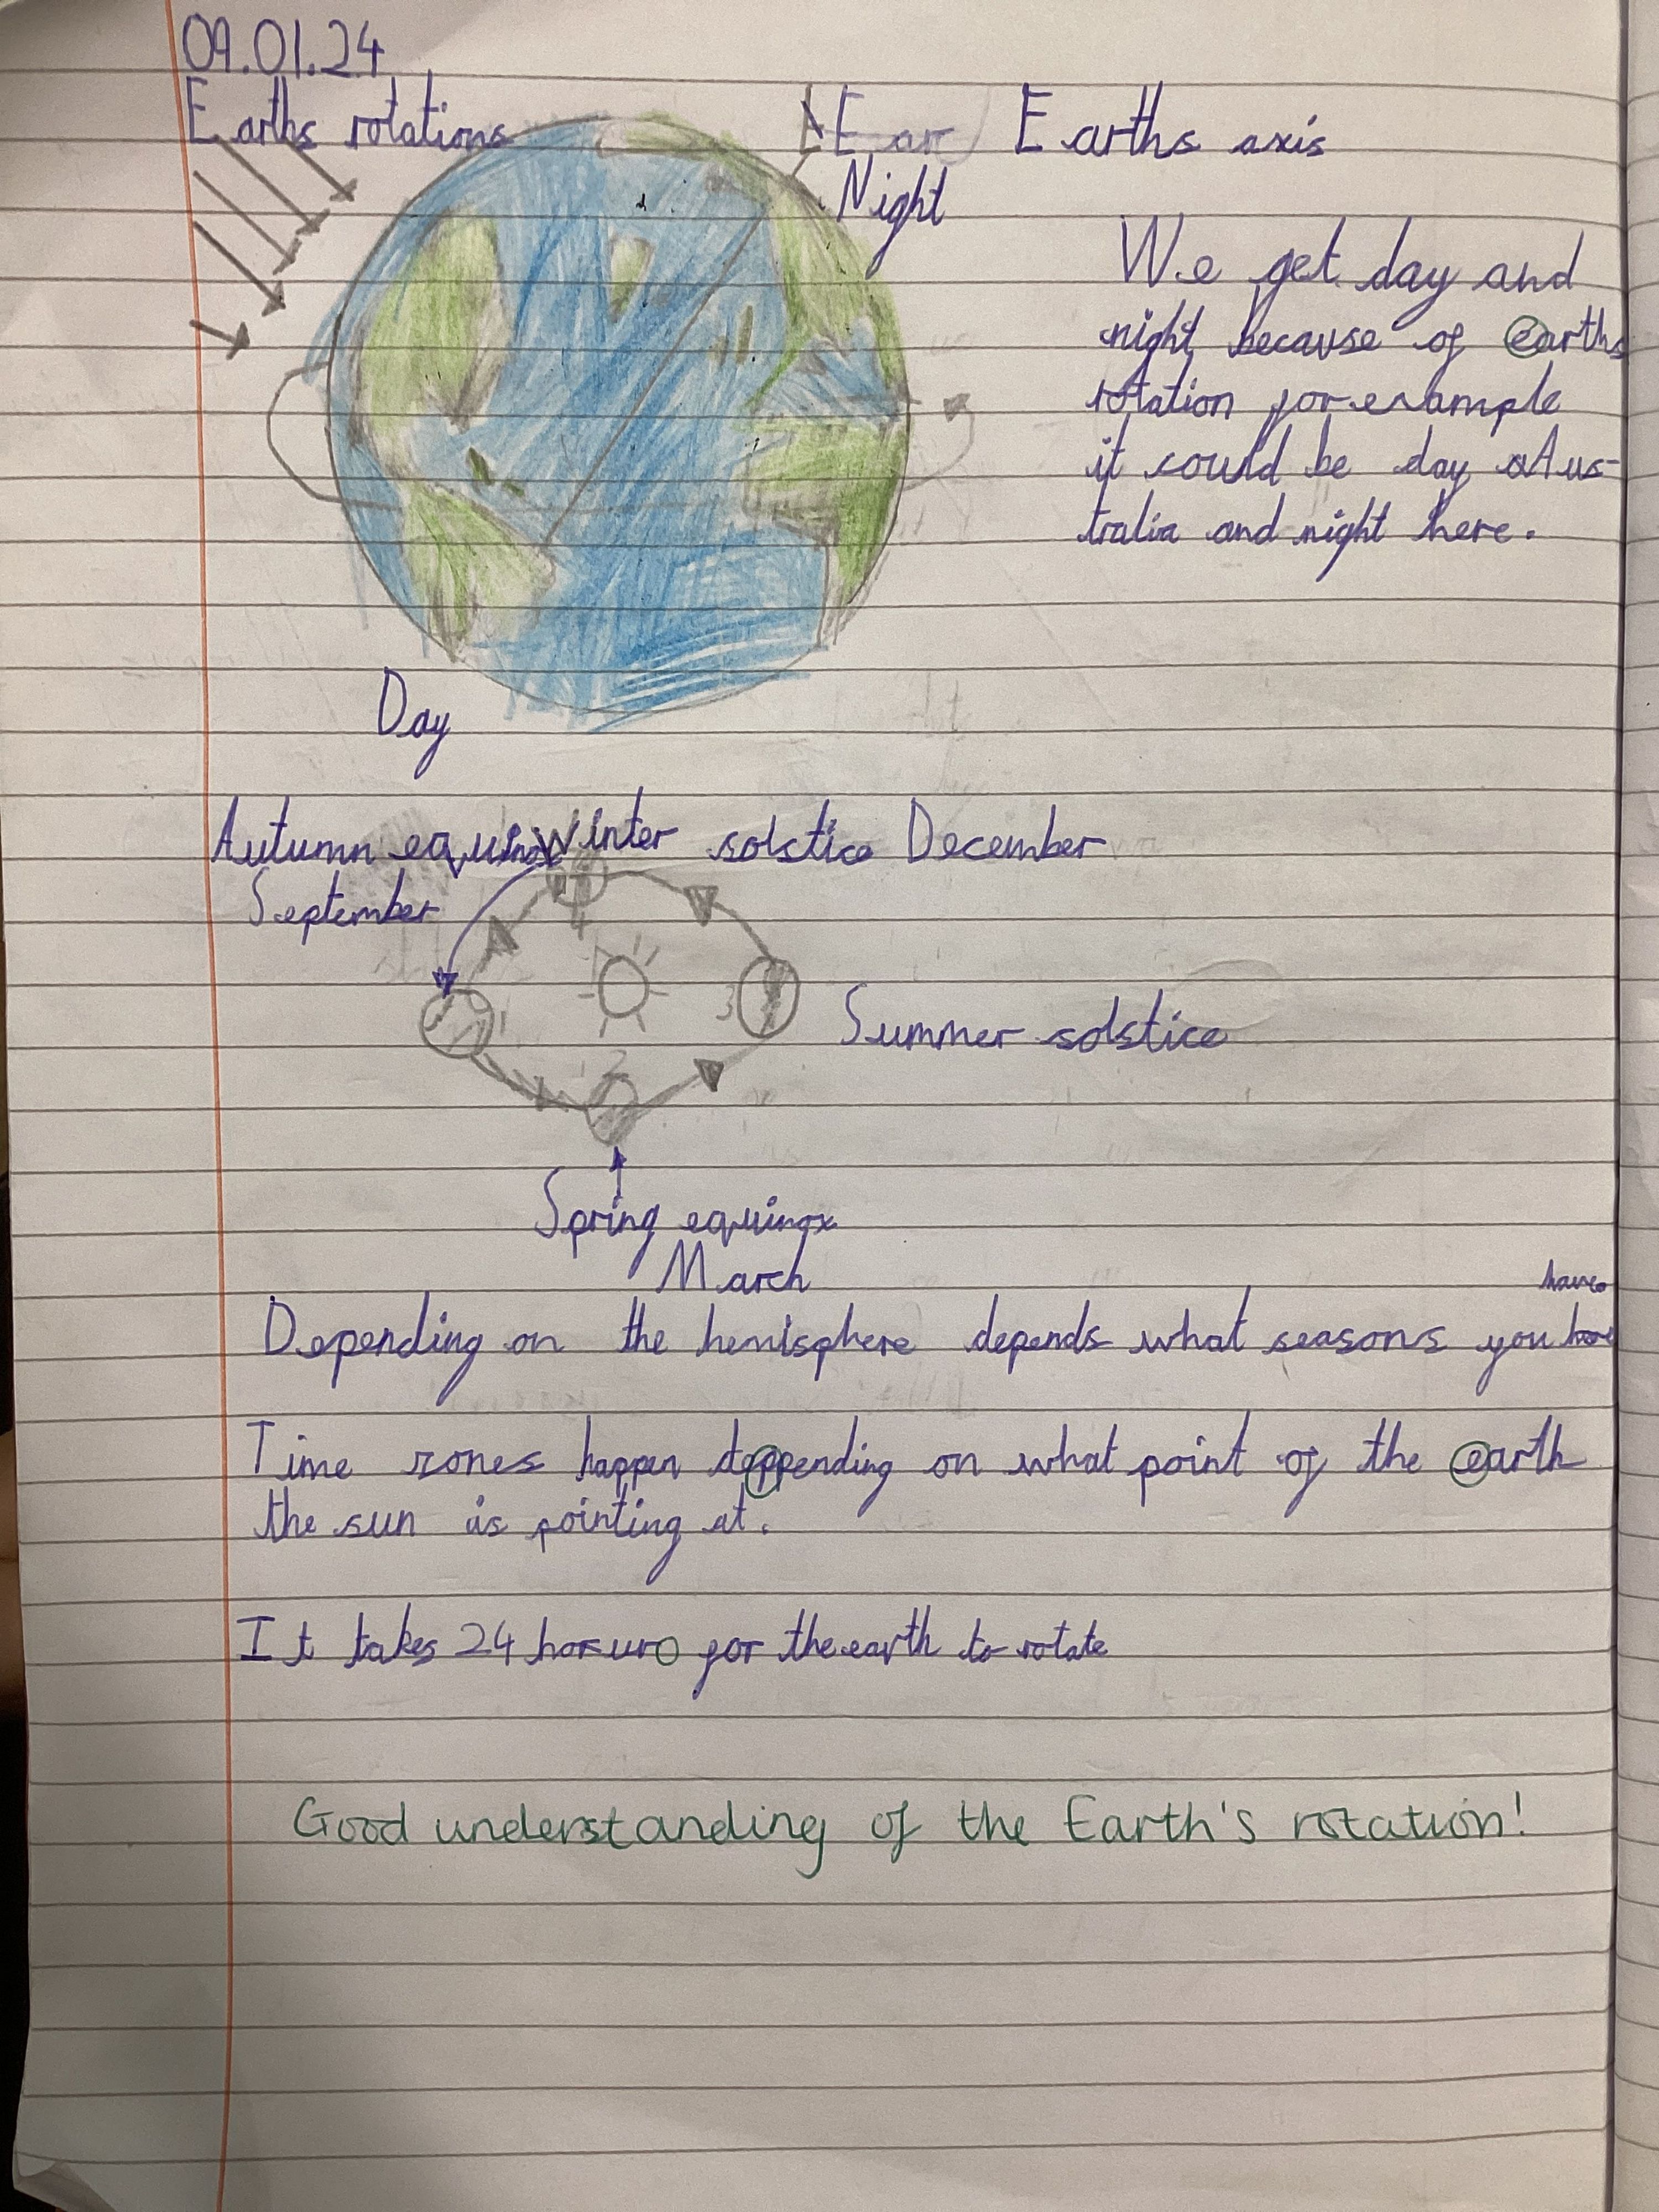 09.01.24
Earths rotations
Ear Earths axis
Night
We get day and
night because of earths
rotation for example
it could be day Aus-
tralia and night here.
Day
Autumn equinox Winter solstice December
September
4
1
3
2
Summer solstice
Spring equinox
March
have
Depending on the hemisphere depends what seasons you
Time zones happen deppending on what point of the earth
the sun is pointing at.
It takes 24 for the earth to rotate
Good understanding of the Earth's rotation!